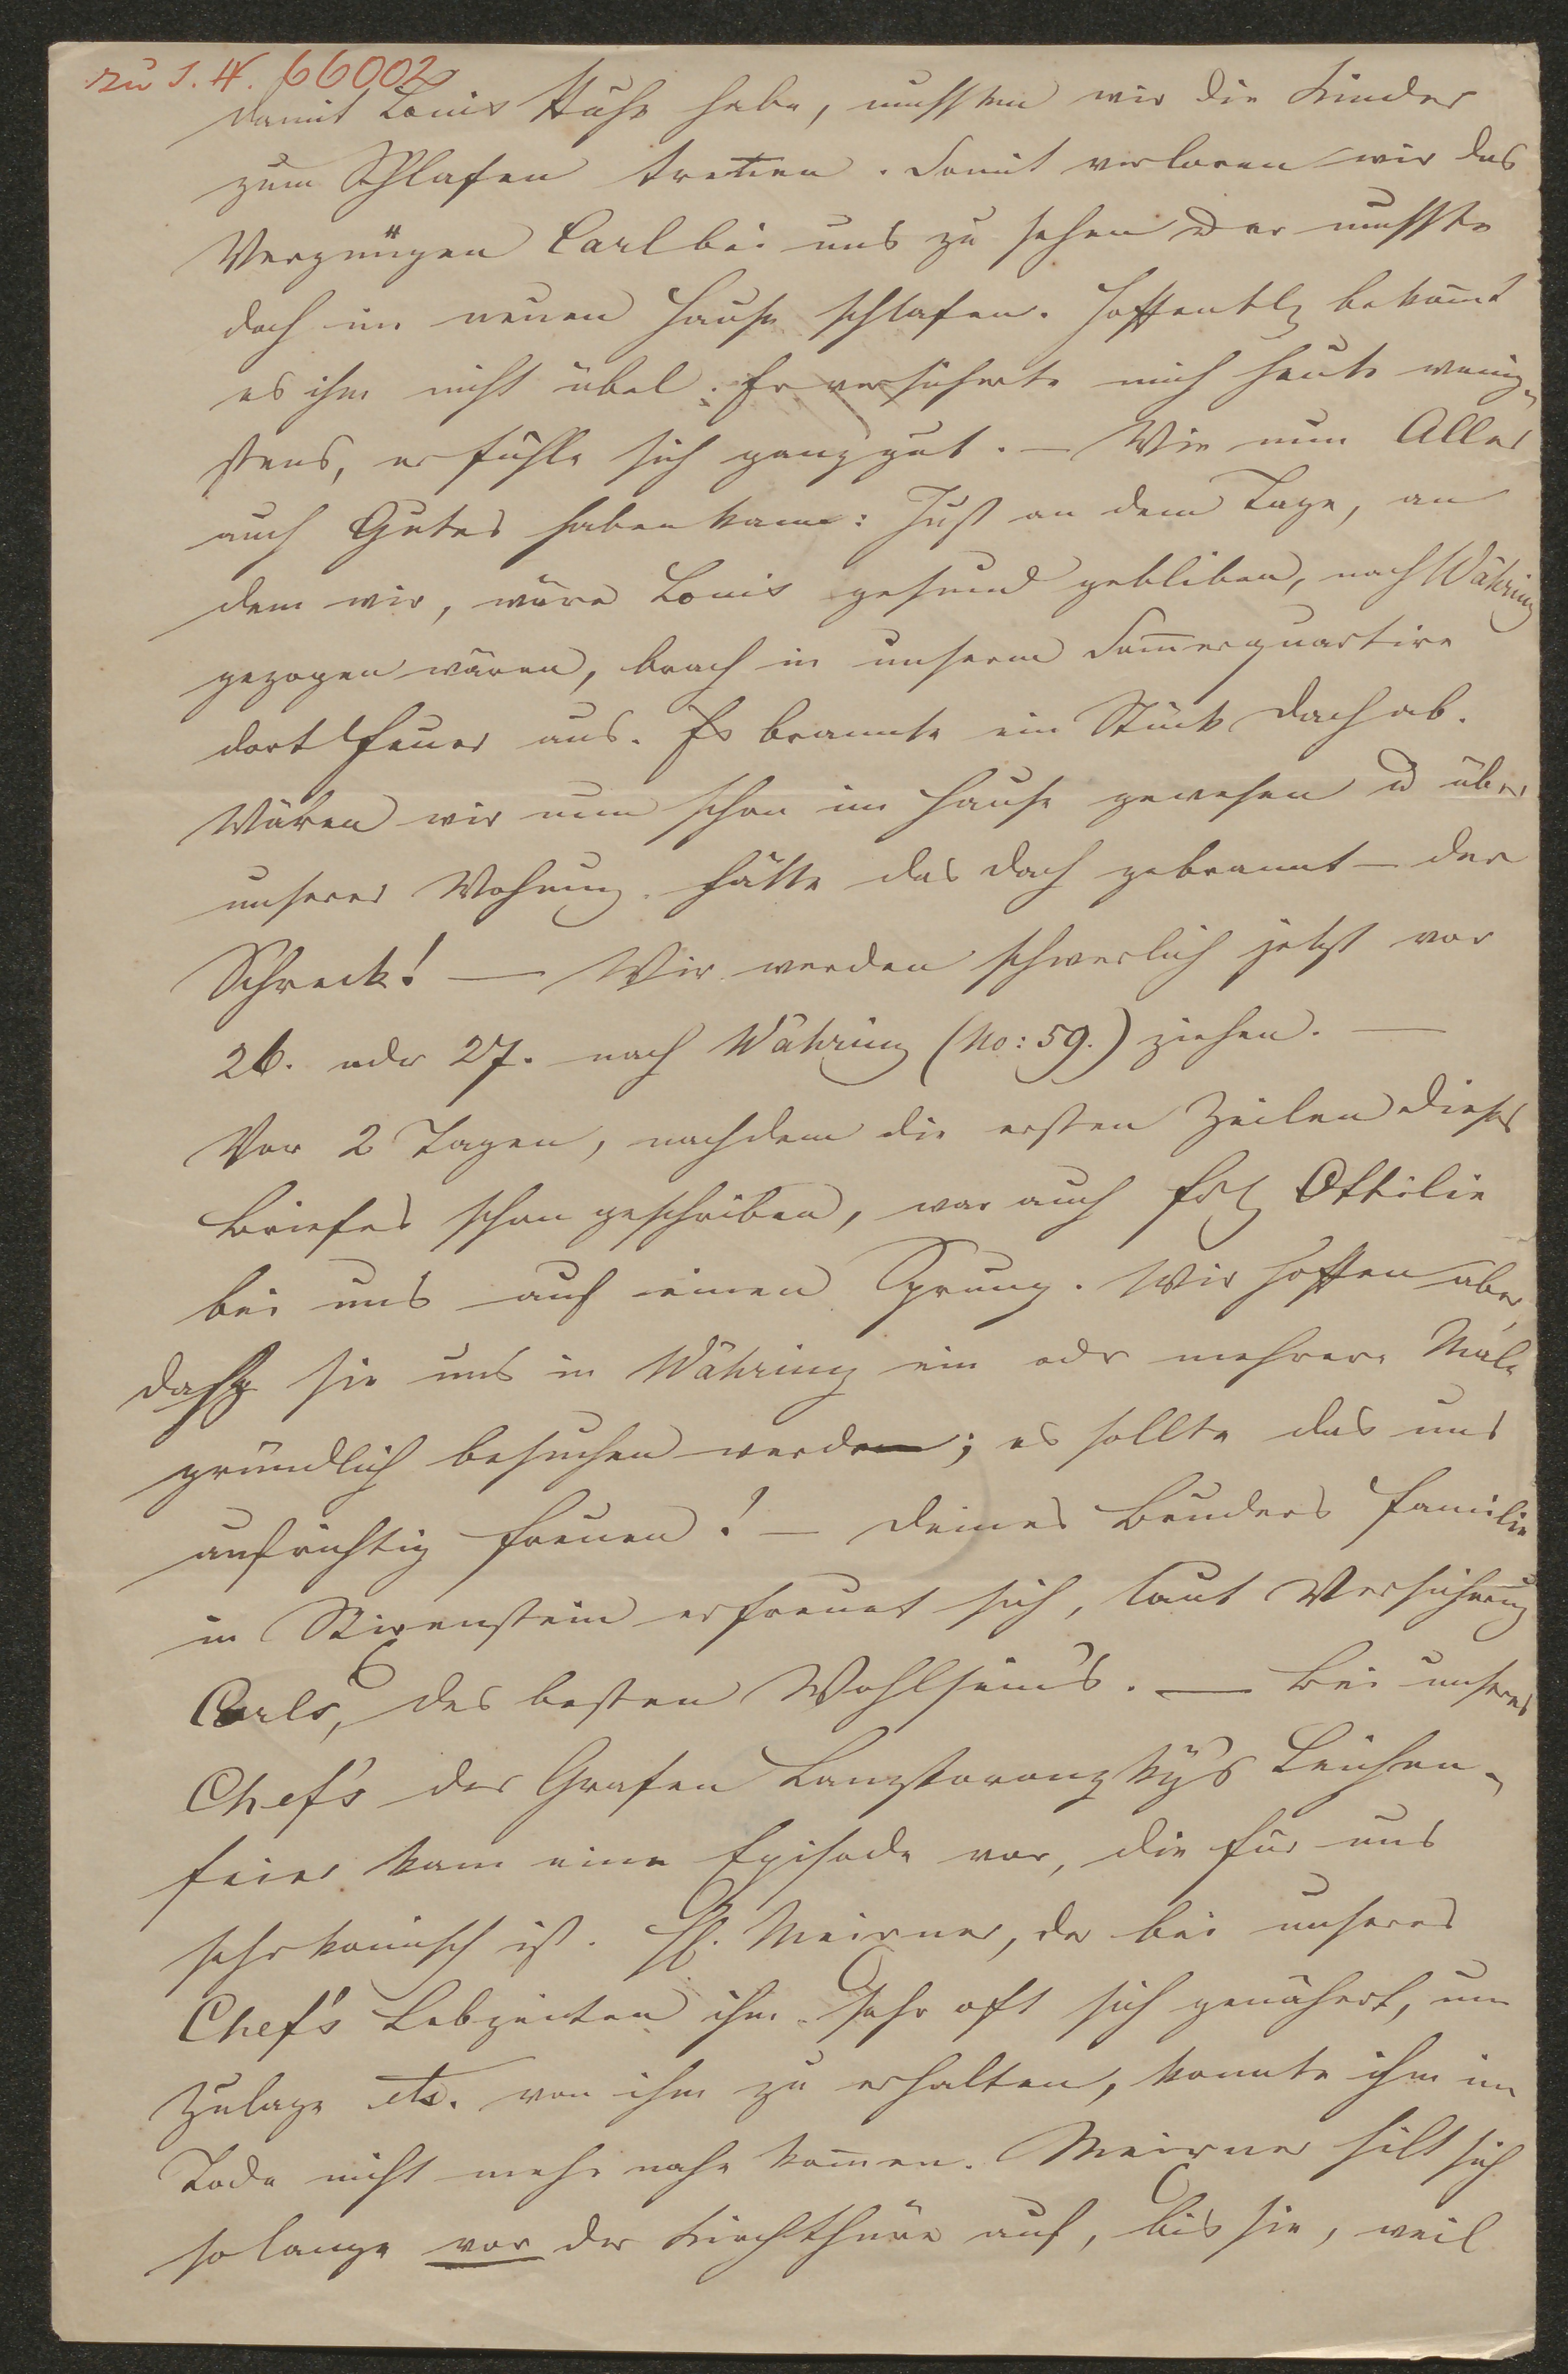 zu I. N. 66002
damit Louis Ruhe habe, mussten wir die Kinder
zum Schlafen trennen. Somit verloren wir das
Vergnügen Carl bei uns zu sehen u er musste
doch im neuen Hause schlafen. Hoffentlich bekom̄t
es ihm nicht übel. Er versicherte mich heute wenig-
stens, er fühle sich ganz gut. — Wie nun Alles
auch Gutes haben kann: Just an dem Tage, an
dem wir, wäre Louis gesund gebliben, nach Währing
gezogen wären, brach in unserm Som̄erquartire
dort Feuer aus. Es brannte ein Stück Dach ab.
Wären wir nun schon im Hause gewesen u über
unserer Wohnung hätte das Dach gebrannt — der
Schreck! — Wir werden schwerlich jetzt vor
26. oder 27. nach Währing (No: 59.) ziehen. —
Vor 2 Tagen, nachdem die ersten Zeilen dieses
Briefes schon geschriben, war auch Frl Ottilie
bei uns auf einen Sprung. Wir hoffen aber,
dass sie uns in Währing ein oder mehrere Male
gründlich besuchen werde; es sollte das uns
aufrichtig freuen! — Deines Bruders Familie
in Stixenstein erfreuet sich, laut Versicherung
Carls, des besten Wohlseins. — Bei unseres
Chef's des Grafen Lanzkoronzky's Leichen-
feier kam eine Episode vor, die für uns
sehr komisch ist. H. Meixner, der bei unseres
Chef's Lebzeiten ihm sehr oft sich genähert, um
Zulage etc. von ihm zu erhalten, konnte ihm im
Tode nicht mehr nahe kom̄en. Meixner hilt sich
so lange vor der Kirchthüre auf, bis sie, weil